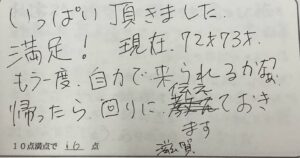 いっぱい頂きました.
満足！ 現在.72才73才.
もう一度.自力で来られるかなぁ
帰ったら回りに.伝えておき
ます
滋賀.
10点満点で 10 点